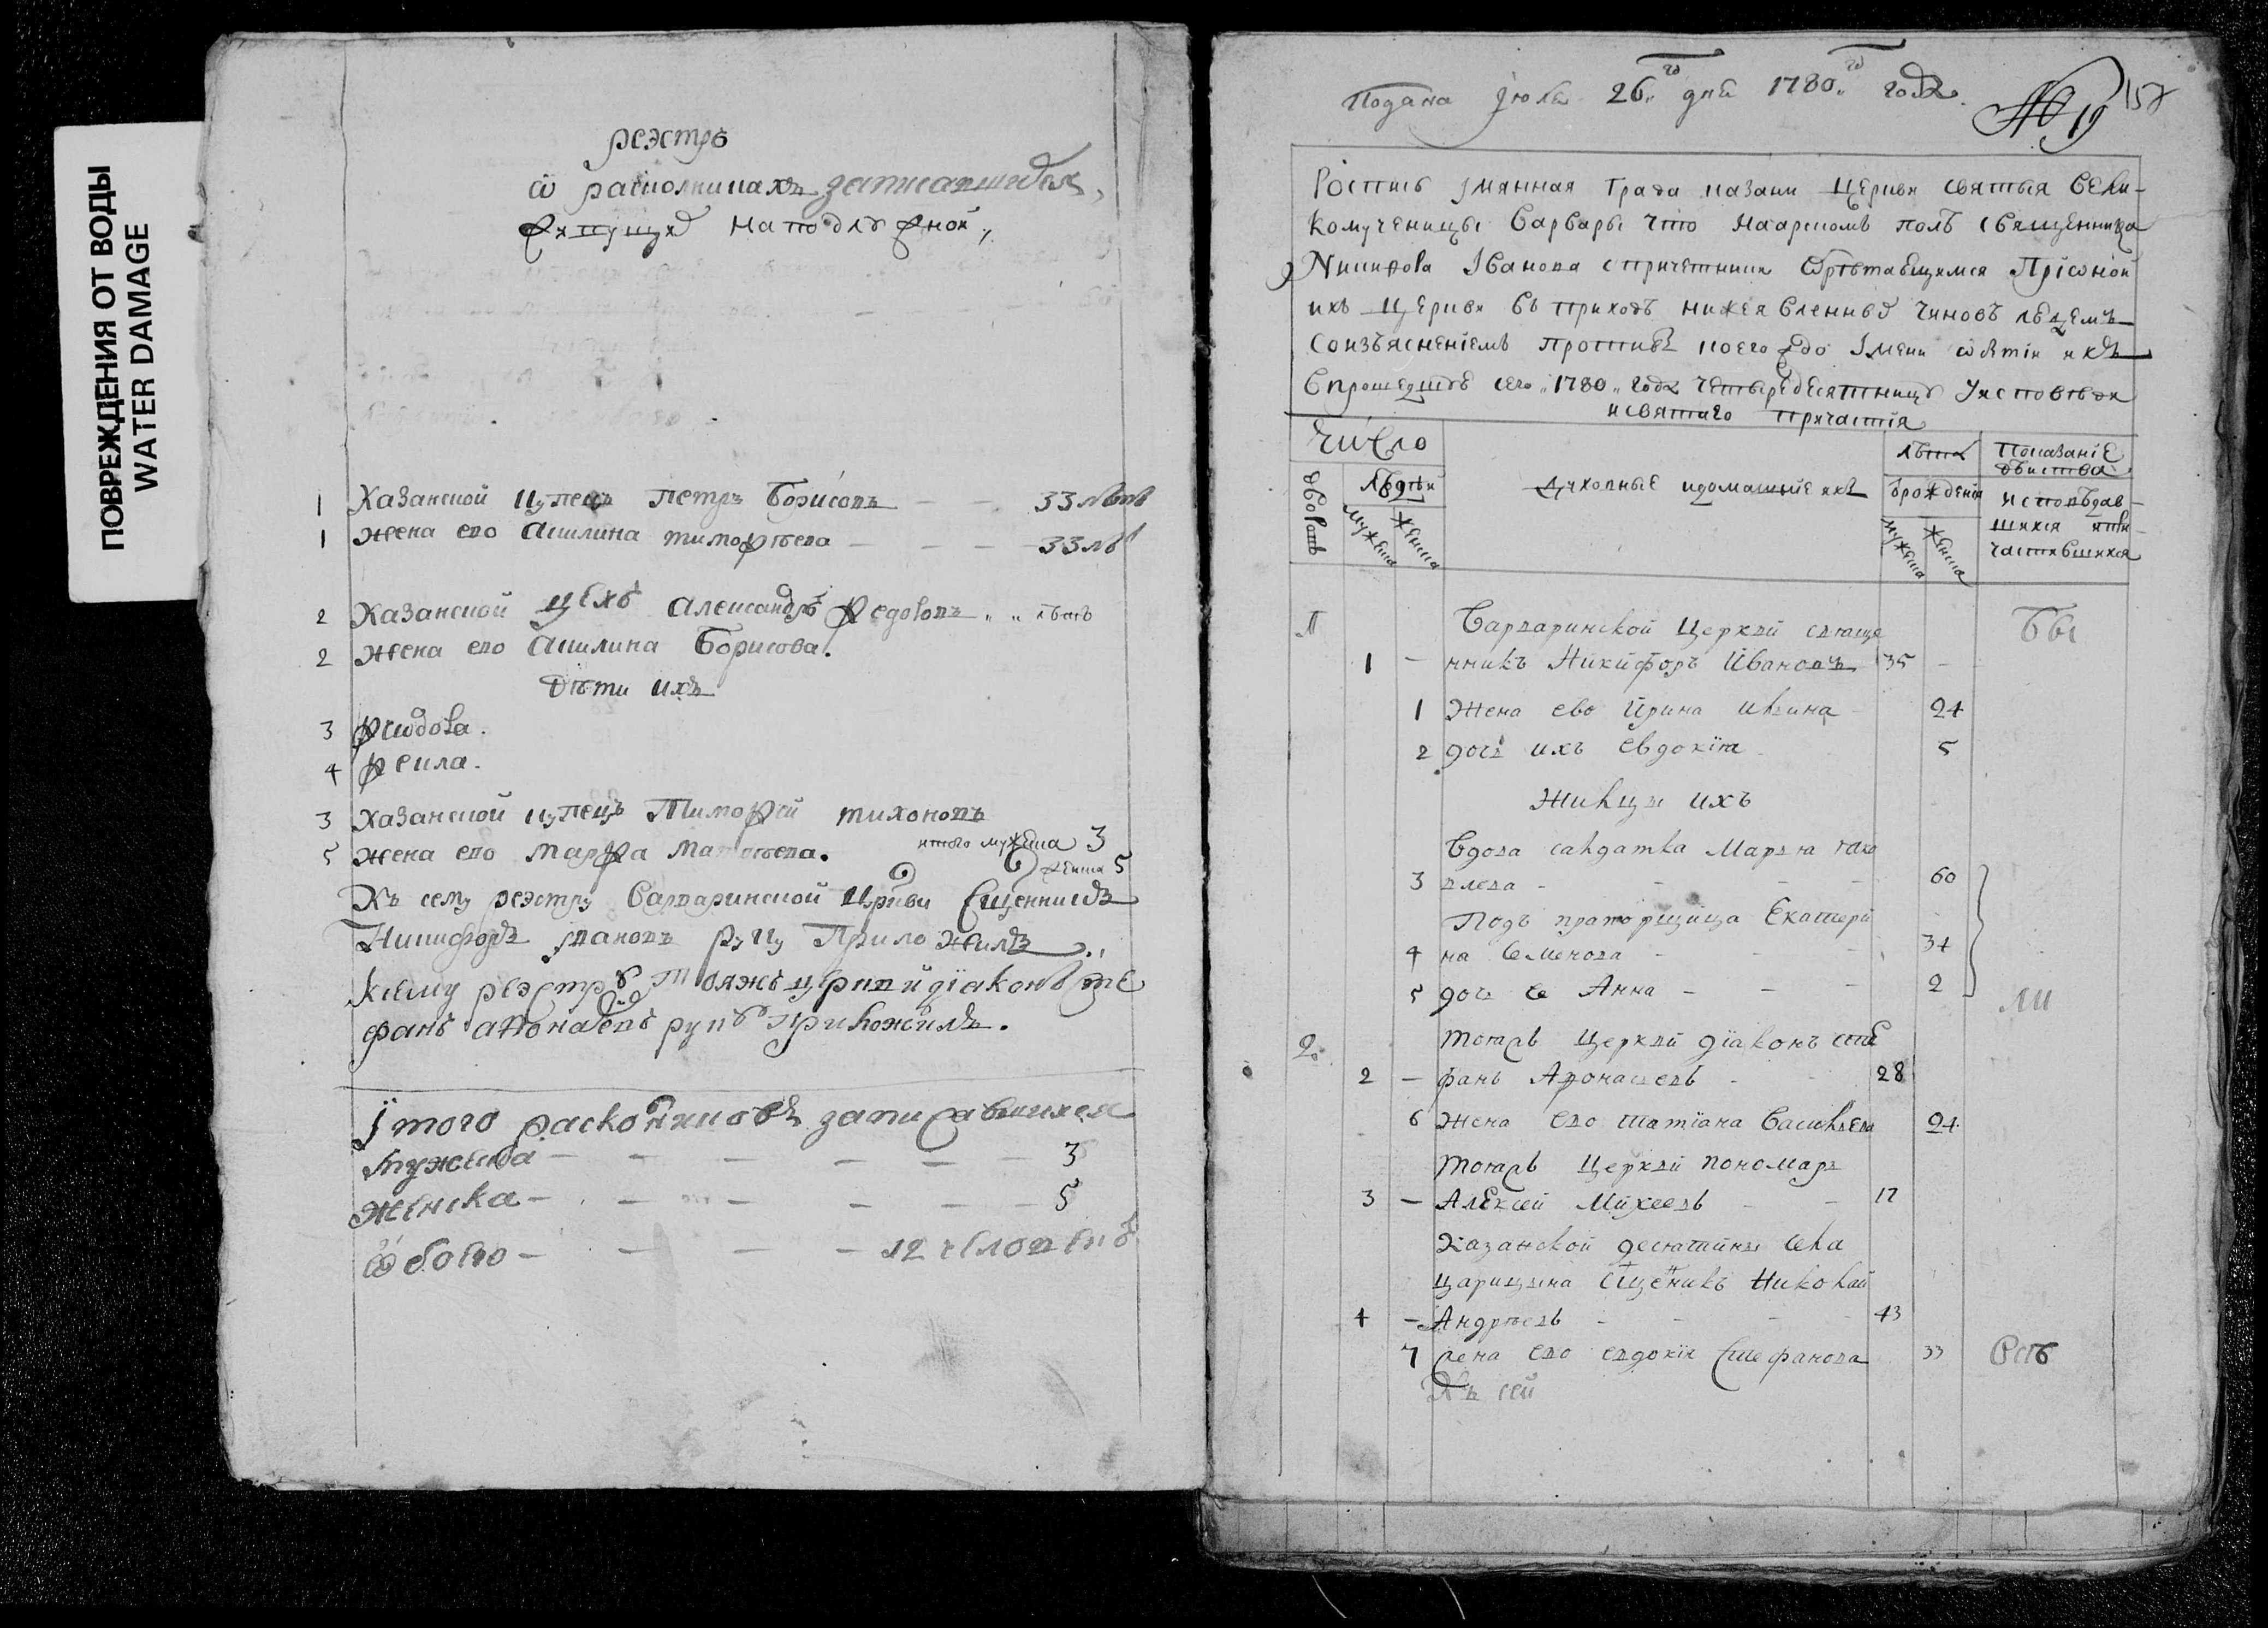 ПОВРЕЖДЕНИЯ ОТ ВОДЫ
WATER DAMAGE
реэстръ
ѿ расколникахъ записавшихся,
живущихъ на подлужной,
1 Казанской купецъ Петръ Борисовъ — — 33 лѣтъ
1 жена ево Акилина тимофѣева — — — 33 лѣ
2 Казанской цехъ Александръ Ѳедоровъ „ „ лѣтъ
2 жена ево Акилина Борисова.
Дѣти ихъ
3 Ѳиодора.
4 Ѳекла.
3 Казанской купецъ Тимоѳей тихоновъ
итого мужеска 3
5 жена ево Марѳа Матвѣева.
женска 5
Къ сему реэстру Варваринской Цркви Сщенникъ
Никифоръ ивановъ руку Приложилъ.
ксему реэстру тояжъ цркви дїаконъ сте
фанъ аѳонасевъ руку приложилъ.
Итого расколниковъ записавшихся
Мужеска — — — — — — 3
женска — — — — — — 5
Ѡбоего — — — — 12 человекъ
Подана Іюля 26„ го дня 1780„ го года.
№ 19
157
Роспись Імянная Града казани Церкви святыя Вели-
комученицы Варвары что наарскомъ полѣ священника
Никифора Іванова спричетники Ѡбрѣтающимся Приѡной
ихъ церкви въ приходѣ нижеявленныхъ чиновъ людемъ
Соизъясненіемъ противъ коегождо Імени ѡбытіи ихъ
Впрошедшую сего „1780„ года четыредесятницу Уисповѣди
исвятаго причастія
Число
дворовъ
Людѣи
мужеска
женска
Духовные идомашніе ихъ
лѣта
ѿрожденія
мужеска
женска
Показаніе
дѣиства
исповѣдав-
шихся ипри-
частившихся
1
Варваринской Церкви свяще
Бы
1 — нникъ Никифоръ Ивановъ 35 —
1 Жена ево Ирина илина 24
2 дочь ихъ Евдокїя 5
Жилцы ихъ
Вдова салдатка Марья яко
3 влева — — — — 60
Подъ праторщица Екатери
4 на Семенова — — — 34
5 дочь ее Анна — — — 2
ли
2.
тояжъ Церкви дїаконъ сте
2 — фанъ Аѳонасевъ — 28
6 Жена ево татїана Василева 24
тояжъ Церкви пономарь
3 — Алексей Михеевъ — 17
Казанской десятины села
царицына Сщеникъ Николай
4 — Андрѣевъ — — — 43
7 жена ево евдокїя Стефанова 33
Къ сей